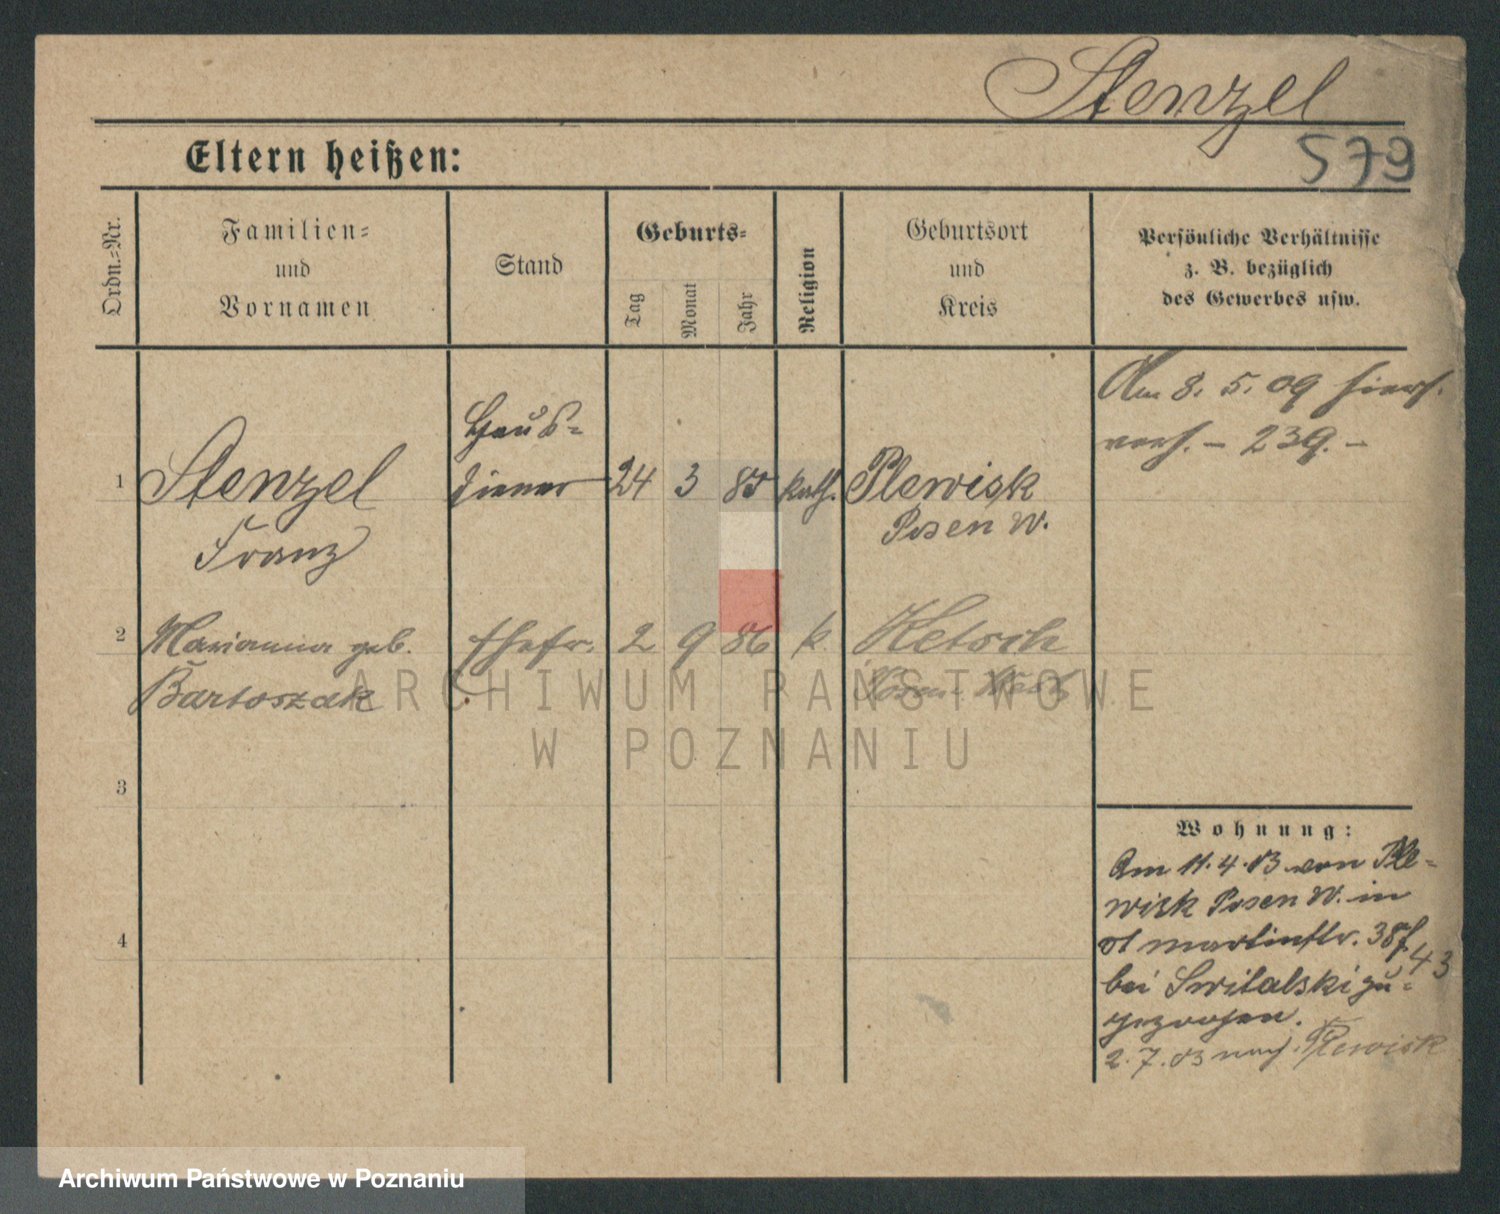 Stenzel
579
Eltern heißen:
Ordn.-Nr.
Familien-
und
Vornamen
Stand
Geburts-
Tag
Monat
Jahr
Religion
Geburtsort
und
Kreis
Persönliche Verhältnisse
z. B. bezüglich
des Gewerbes usw.
Am 8. 5. 09 hiers.
verh. – 239. –
Haus-
1 Stenzel diener 24 3 85 kath. Plewisk
Franz Posen W.
2 Marianna geb. Ehefr. 2 9 86 k.
Bartoszak Posen West
3
4
Wohnung:
Am 11.4.03 von Ple-
wisk Posen W. in
St Martinstr. 38
43
bei Switalski zu-
gezogen.
2.7.03 nach Plewisk
ARCHIWUM PAŃSTWOWE
W POZNANIU
Archiwum Państwowe w Poznaniu